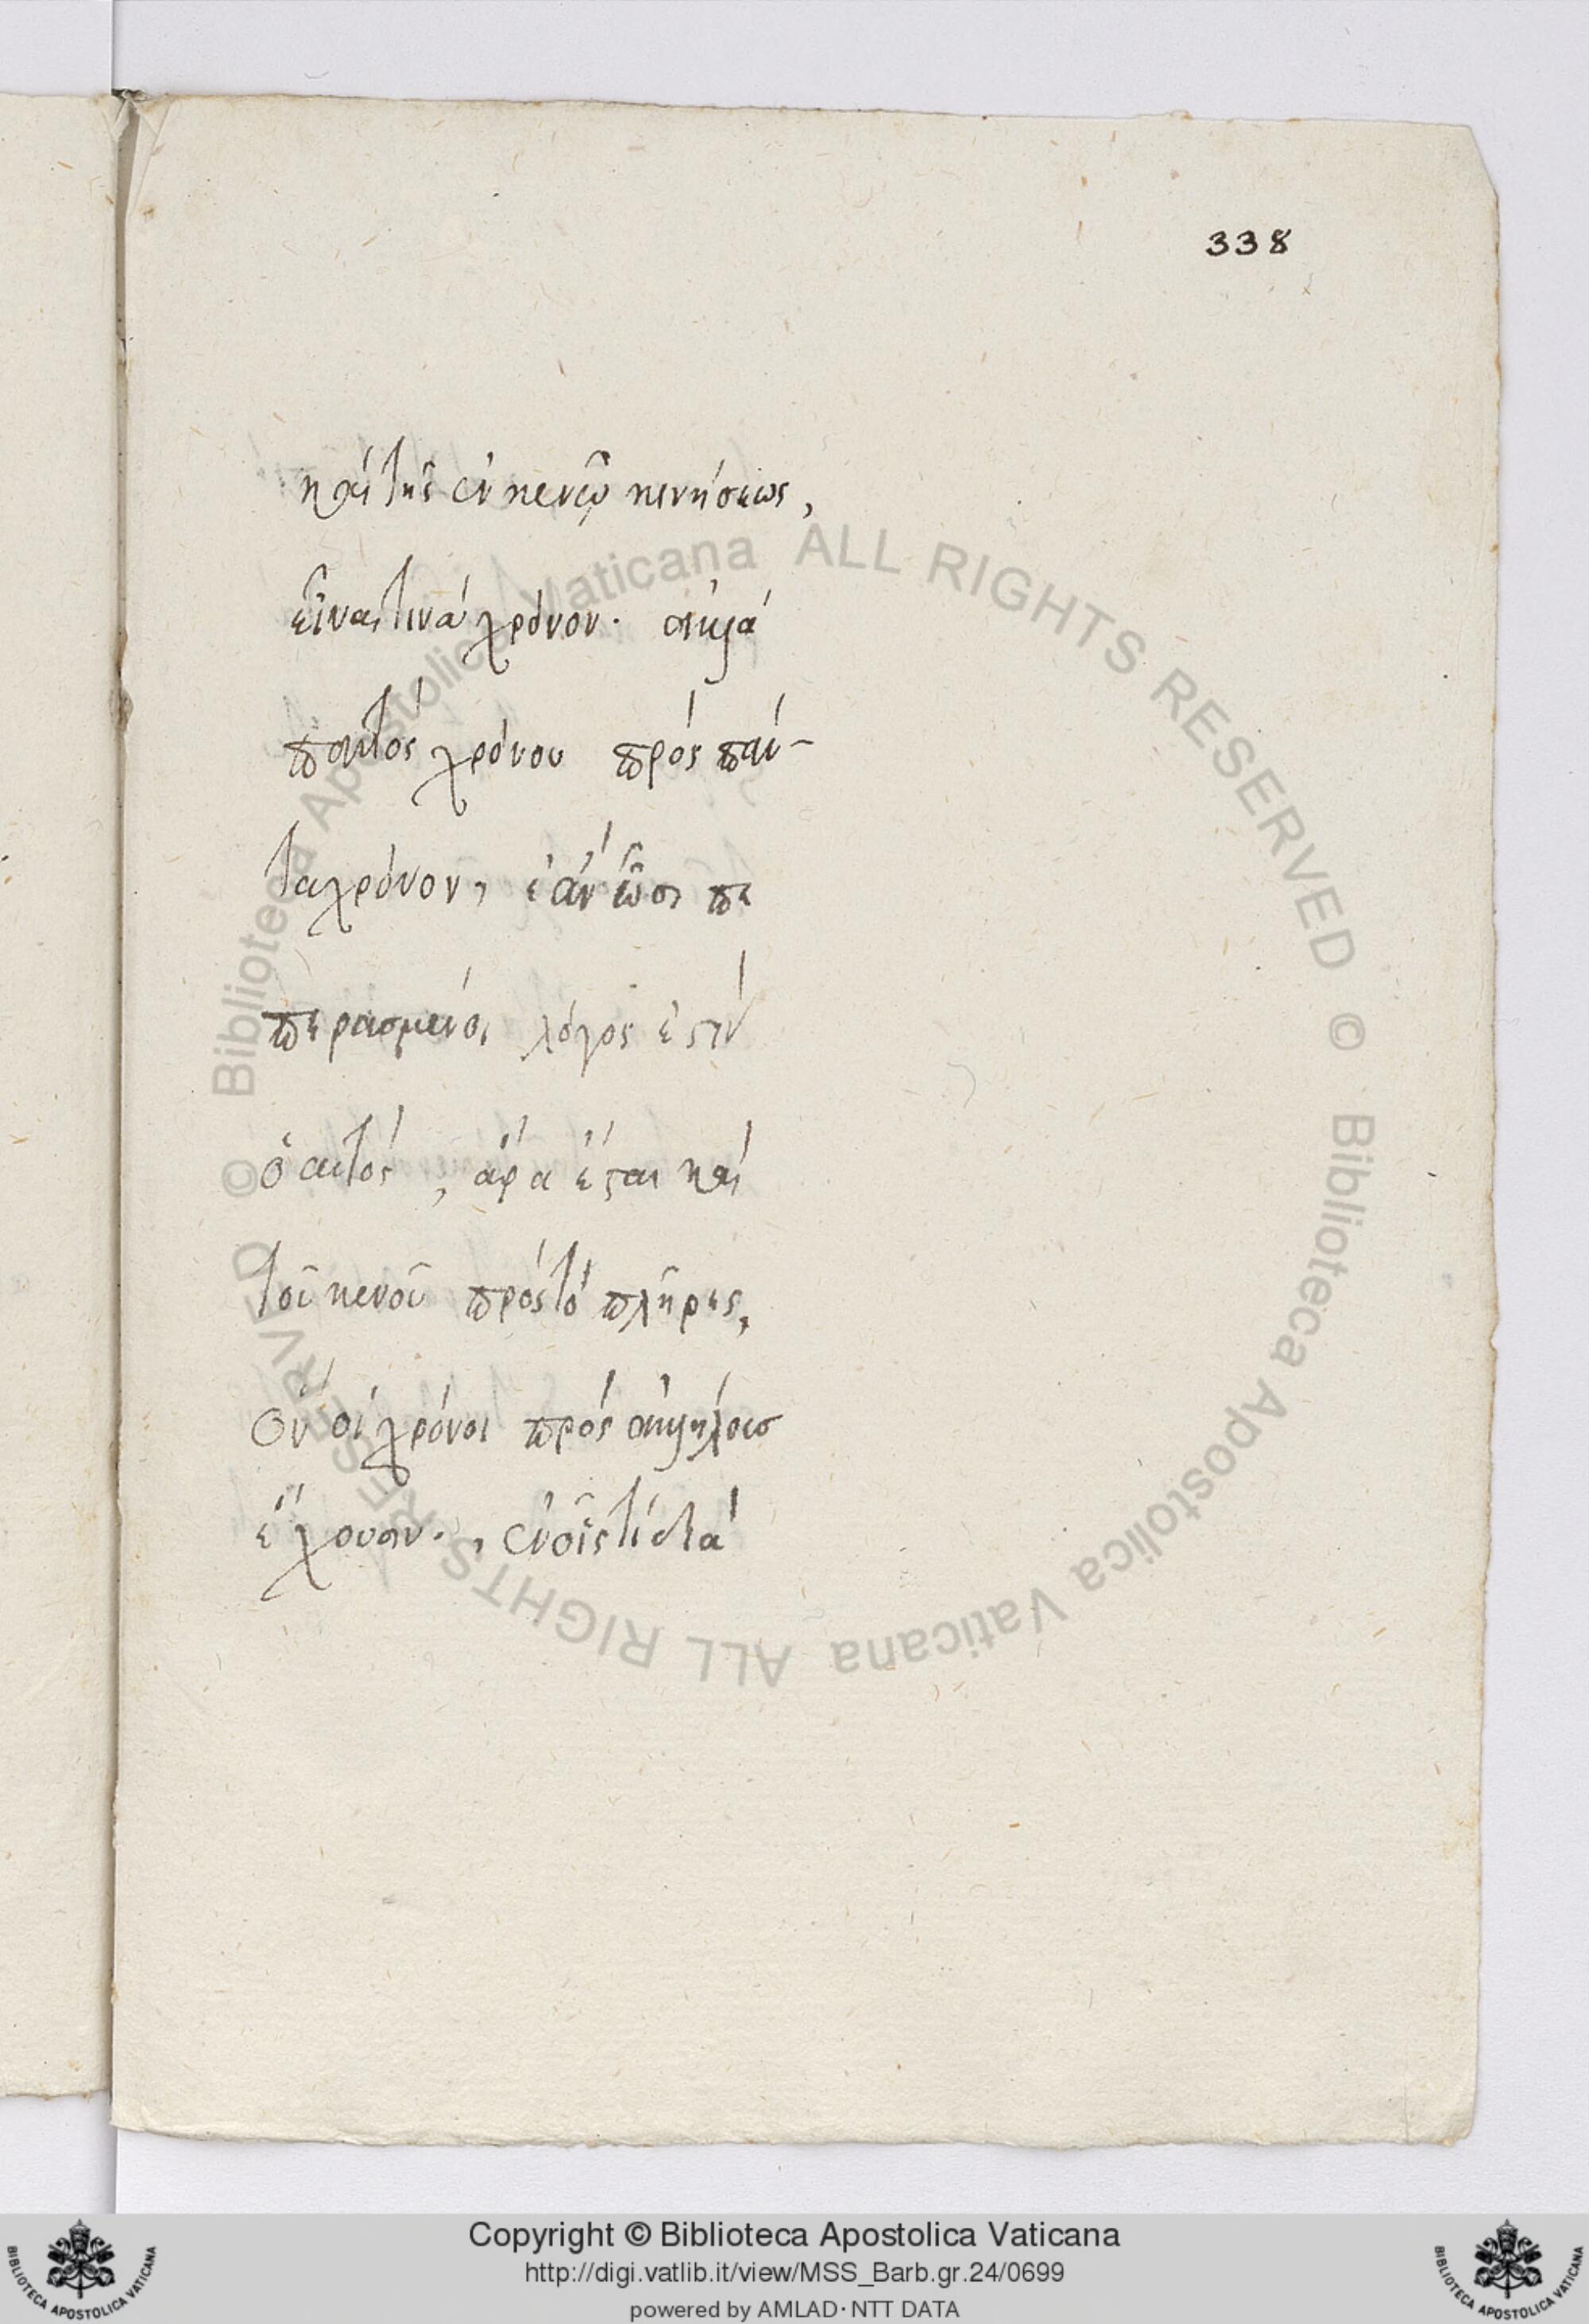 338
καὶ τῆς ἐν κενῷ κινήσεως,
εἶναι τινὰ χρόνον. ἀλλὰ
παντὸς χρόνου πρὸς πάν-
τα χρόνον, ἐὰν ὦσι πε
περασμένοι λόγος ἐστὶν
ὁ αὐτὸς, ἄρα ἔσται καὶ
τοῦ κενοῦ πρὸς τὸ πλῆρες,
ὃν οἱ χρόνοι πρὸς ἀλλήλους
ἔχουσιν., ἐν οἷς τί δὲ τὰ
© Biblioteca Apostolica Vaticana ALL RIGHTS RESERVED © Biblioteca Apostolica Vaticana ALL RIGHTS RESERVED
Copyright © Biblioteca Apostolica Vaticana
http://digi.vatlib.it/view/MSS_Barb.gr.24/0699
powered by AMLAD·NTT DATA
BIBLIOTECA APOSTOLICA VATICANA
BIBLIOTECA APOSTOLICA VATICANA